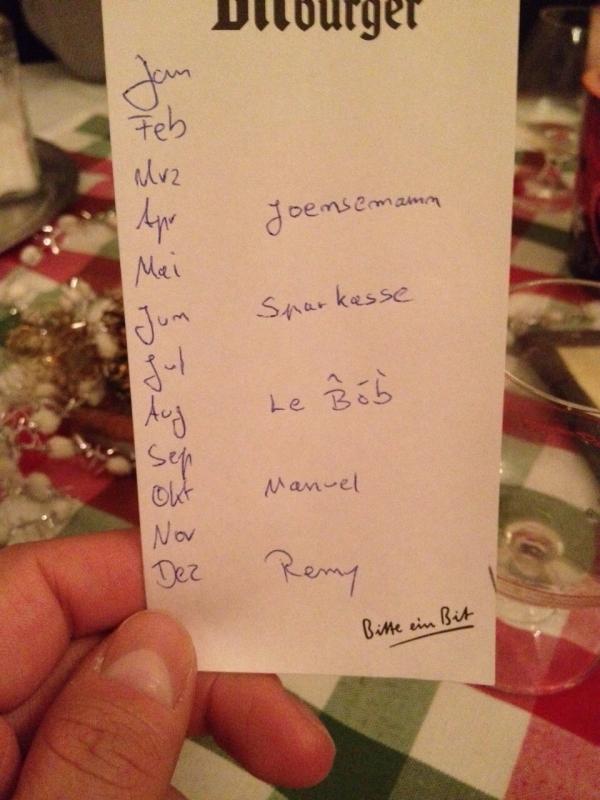 Bitburger
Jan
Feb
Mrz
Apr Joensemann
Mai
Jun Sparkasse
Jul
Aug Le B̂ób̀
Sep
Okt Manuel
Nov
Dez Remy
Bitte ein Bit